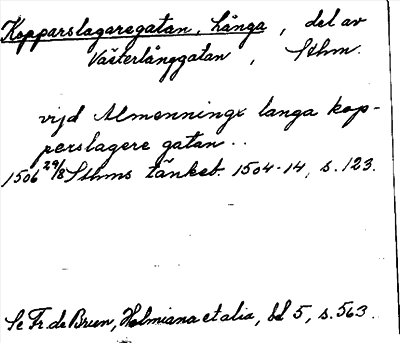 Kopparslagaregatan, Långa, del av
Västerlånggatan, Sthm.
vijd Almenningx langa kop-
perslagere gatan..
1506 29/8 Sthms tänkeb. 1504-14, s. 123.
Se Fr. de Brun, Holmiana et alia, bd 5, s. 563.